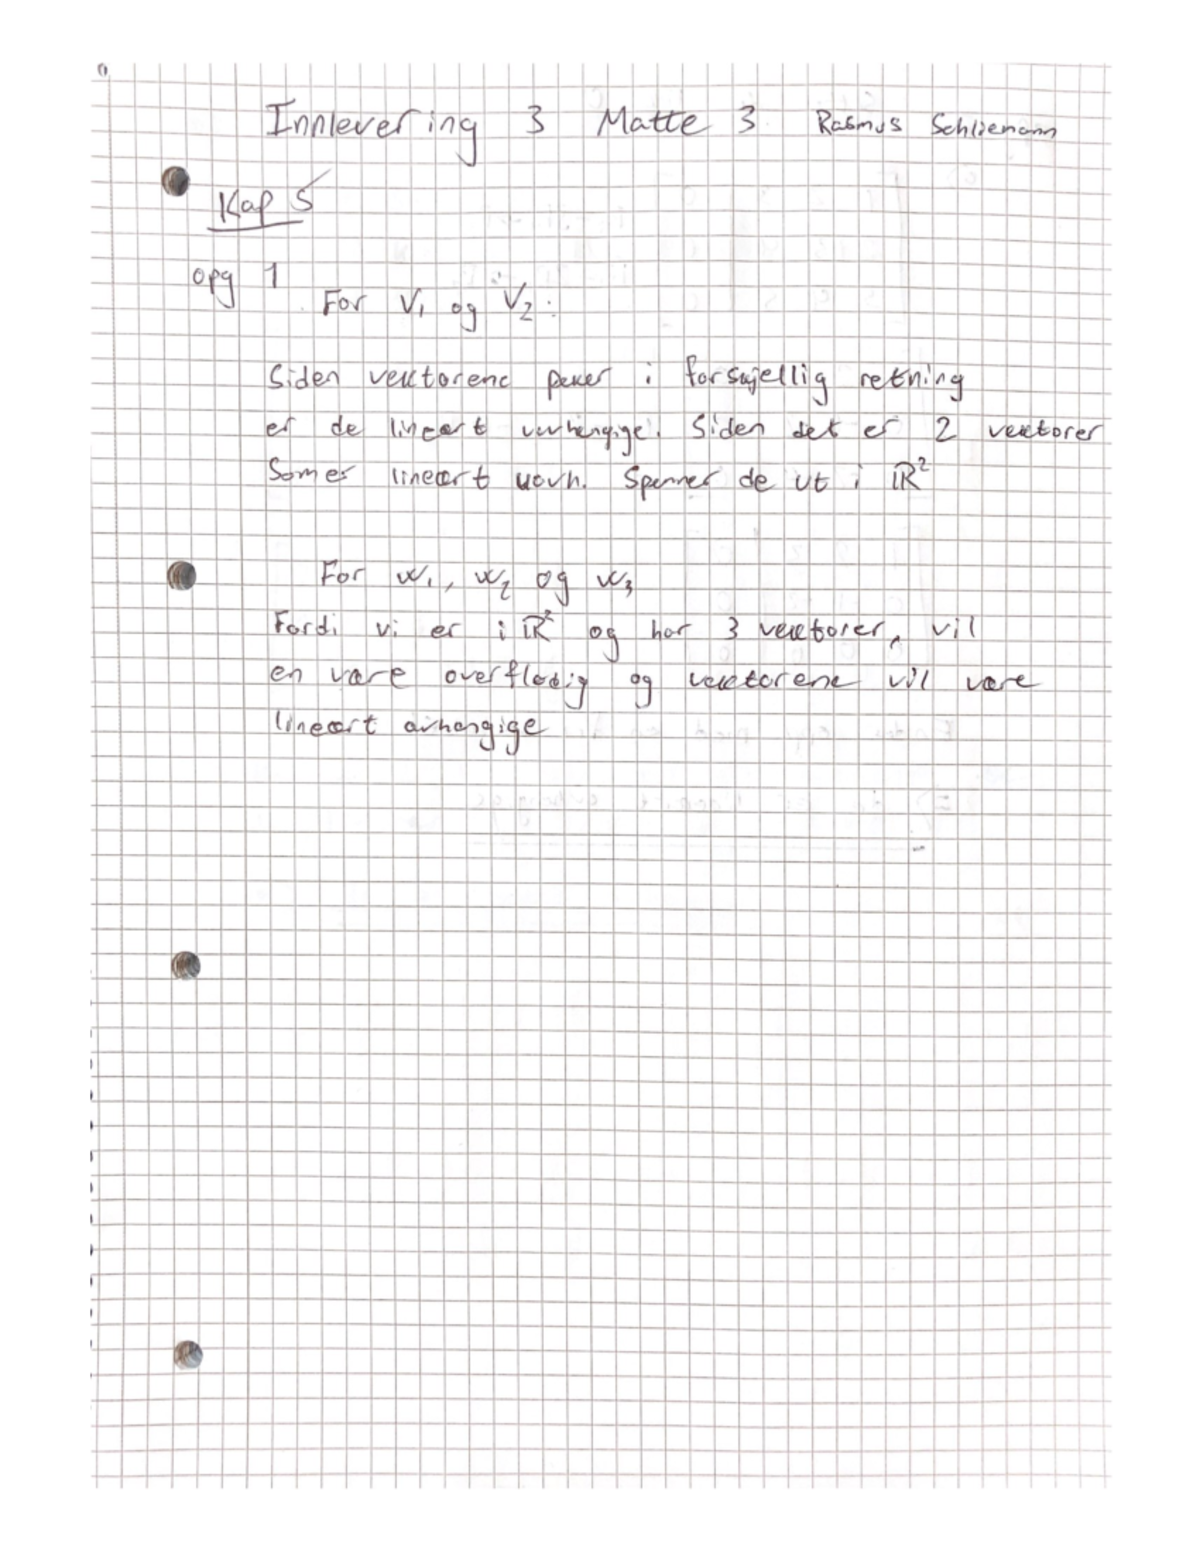 Innlevering 3 Matte 3 Rasmus Schliemann
Kap 5
opg 1
For V₁ og V₂:
Siden vektorene peker i forskjellig retning
er de lineært uavhengige. Siden det er 2 vektorer
Som er lineært uavh. Spenner de ut i ℝ²
For w₁, w₂ og w₃
Fordi vi er i ℝ² og har 3 vektorer, vil
en være overflødig og vektorene vil være
lineært avhengige